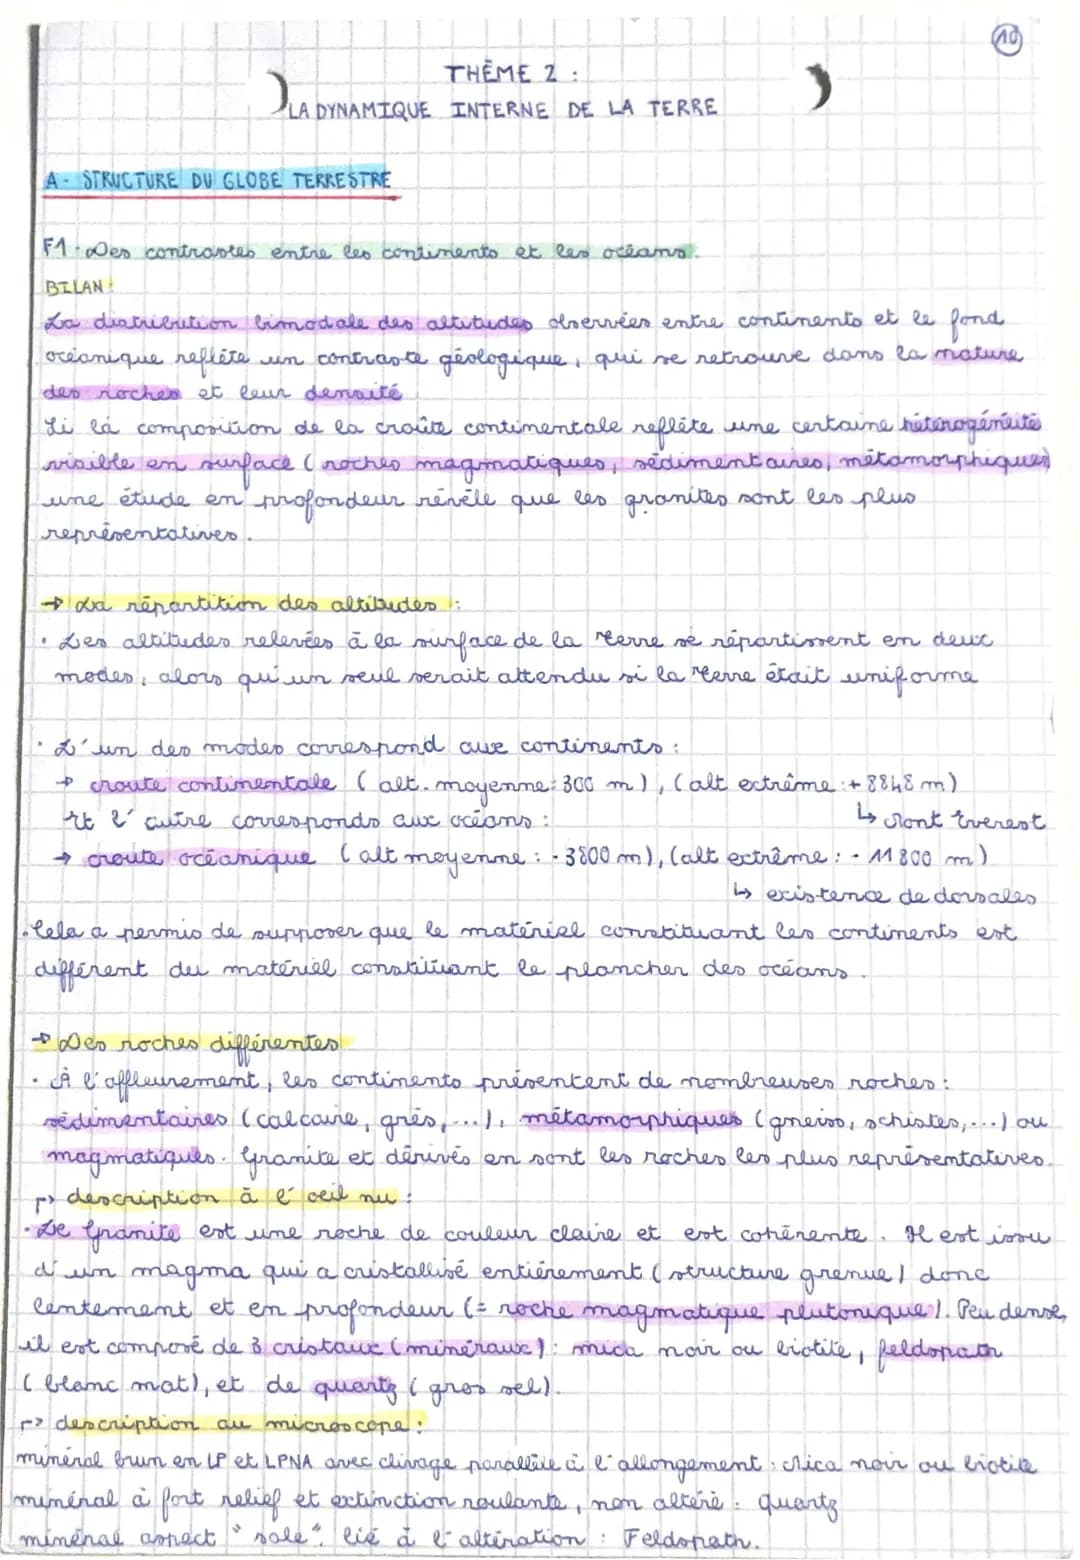 10
THÈME 2 :
LA DYNAMIQUE INTERNE DE LA TERRE
A - STRUCTURE DU GLOBE TERRESTRE
F1 - Des contrastes entre les continents et les océans.
BILAN :
La distribution bimodale des altitudes observées entre continents et le fond
océanique reflète un contraste géologique, qui se retrouve dans la nature
des roches et leur densité
Si la composition de la croûte continentale reflète une certaine hétérogénéité
visible en surface (roches magmatiques, sédimentaires, métamorphiques)
une étude en profondeur révèle que les granites sont les plus
représentatives.
→ La répartition des altitudes :
• Les altitudes relevées à la surface de la Terre se répartissent en deux
modes, alors qu'un seul serait attendu si la Terre était uniforme
• L'un des modes correspond aux continents :
→ croute continentale (alt. moyenne : 300 m), (alt extrême : + 8848 m)
Et l'autre corresponds aux océans : ↳ Mont Everest
→ croute océanique (alt moyenne : - 3800 m), (alt extrême : - 11 800 m)
↳ existence de dorsales
• Cela a permis de supposer que le matériel constituant les continents est
différent du matériel constituant le plancher des océans.
→ Des roches différentes
• À l'affleurement, les continents présentent de nombreuses roches :
sédimentaires (calcaire, grès,...), métamorphiques (gneiss, schistes,...) ou
magmatiques. Granite et dérivés en sont les roches les plus représentatives.
↱ description à l'oeil nu :
• Le Granite est une roche de couleur claire et est cohérente. Il est issu
d'un magma qui a cristallisé entièrement (structure grenue) donc
lentement et en profondeur (= roche magmatique plutonique). Peu dense,
il est composé de 3 cristaux (minéraux) : mica noir ou biotite, feldspath
(blanc mat), et de quartz (gros sel).
↱ description au microscope :
minéral brun en LP et LPNA avec clivage parallèle à l'allongement : Mica noir ou biotite
minéral à fort relief et extinction roulante, non altéré : quartz
minéral aspect "sale" lié à l'altération : Feldspath.